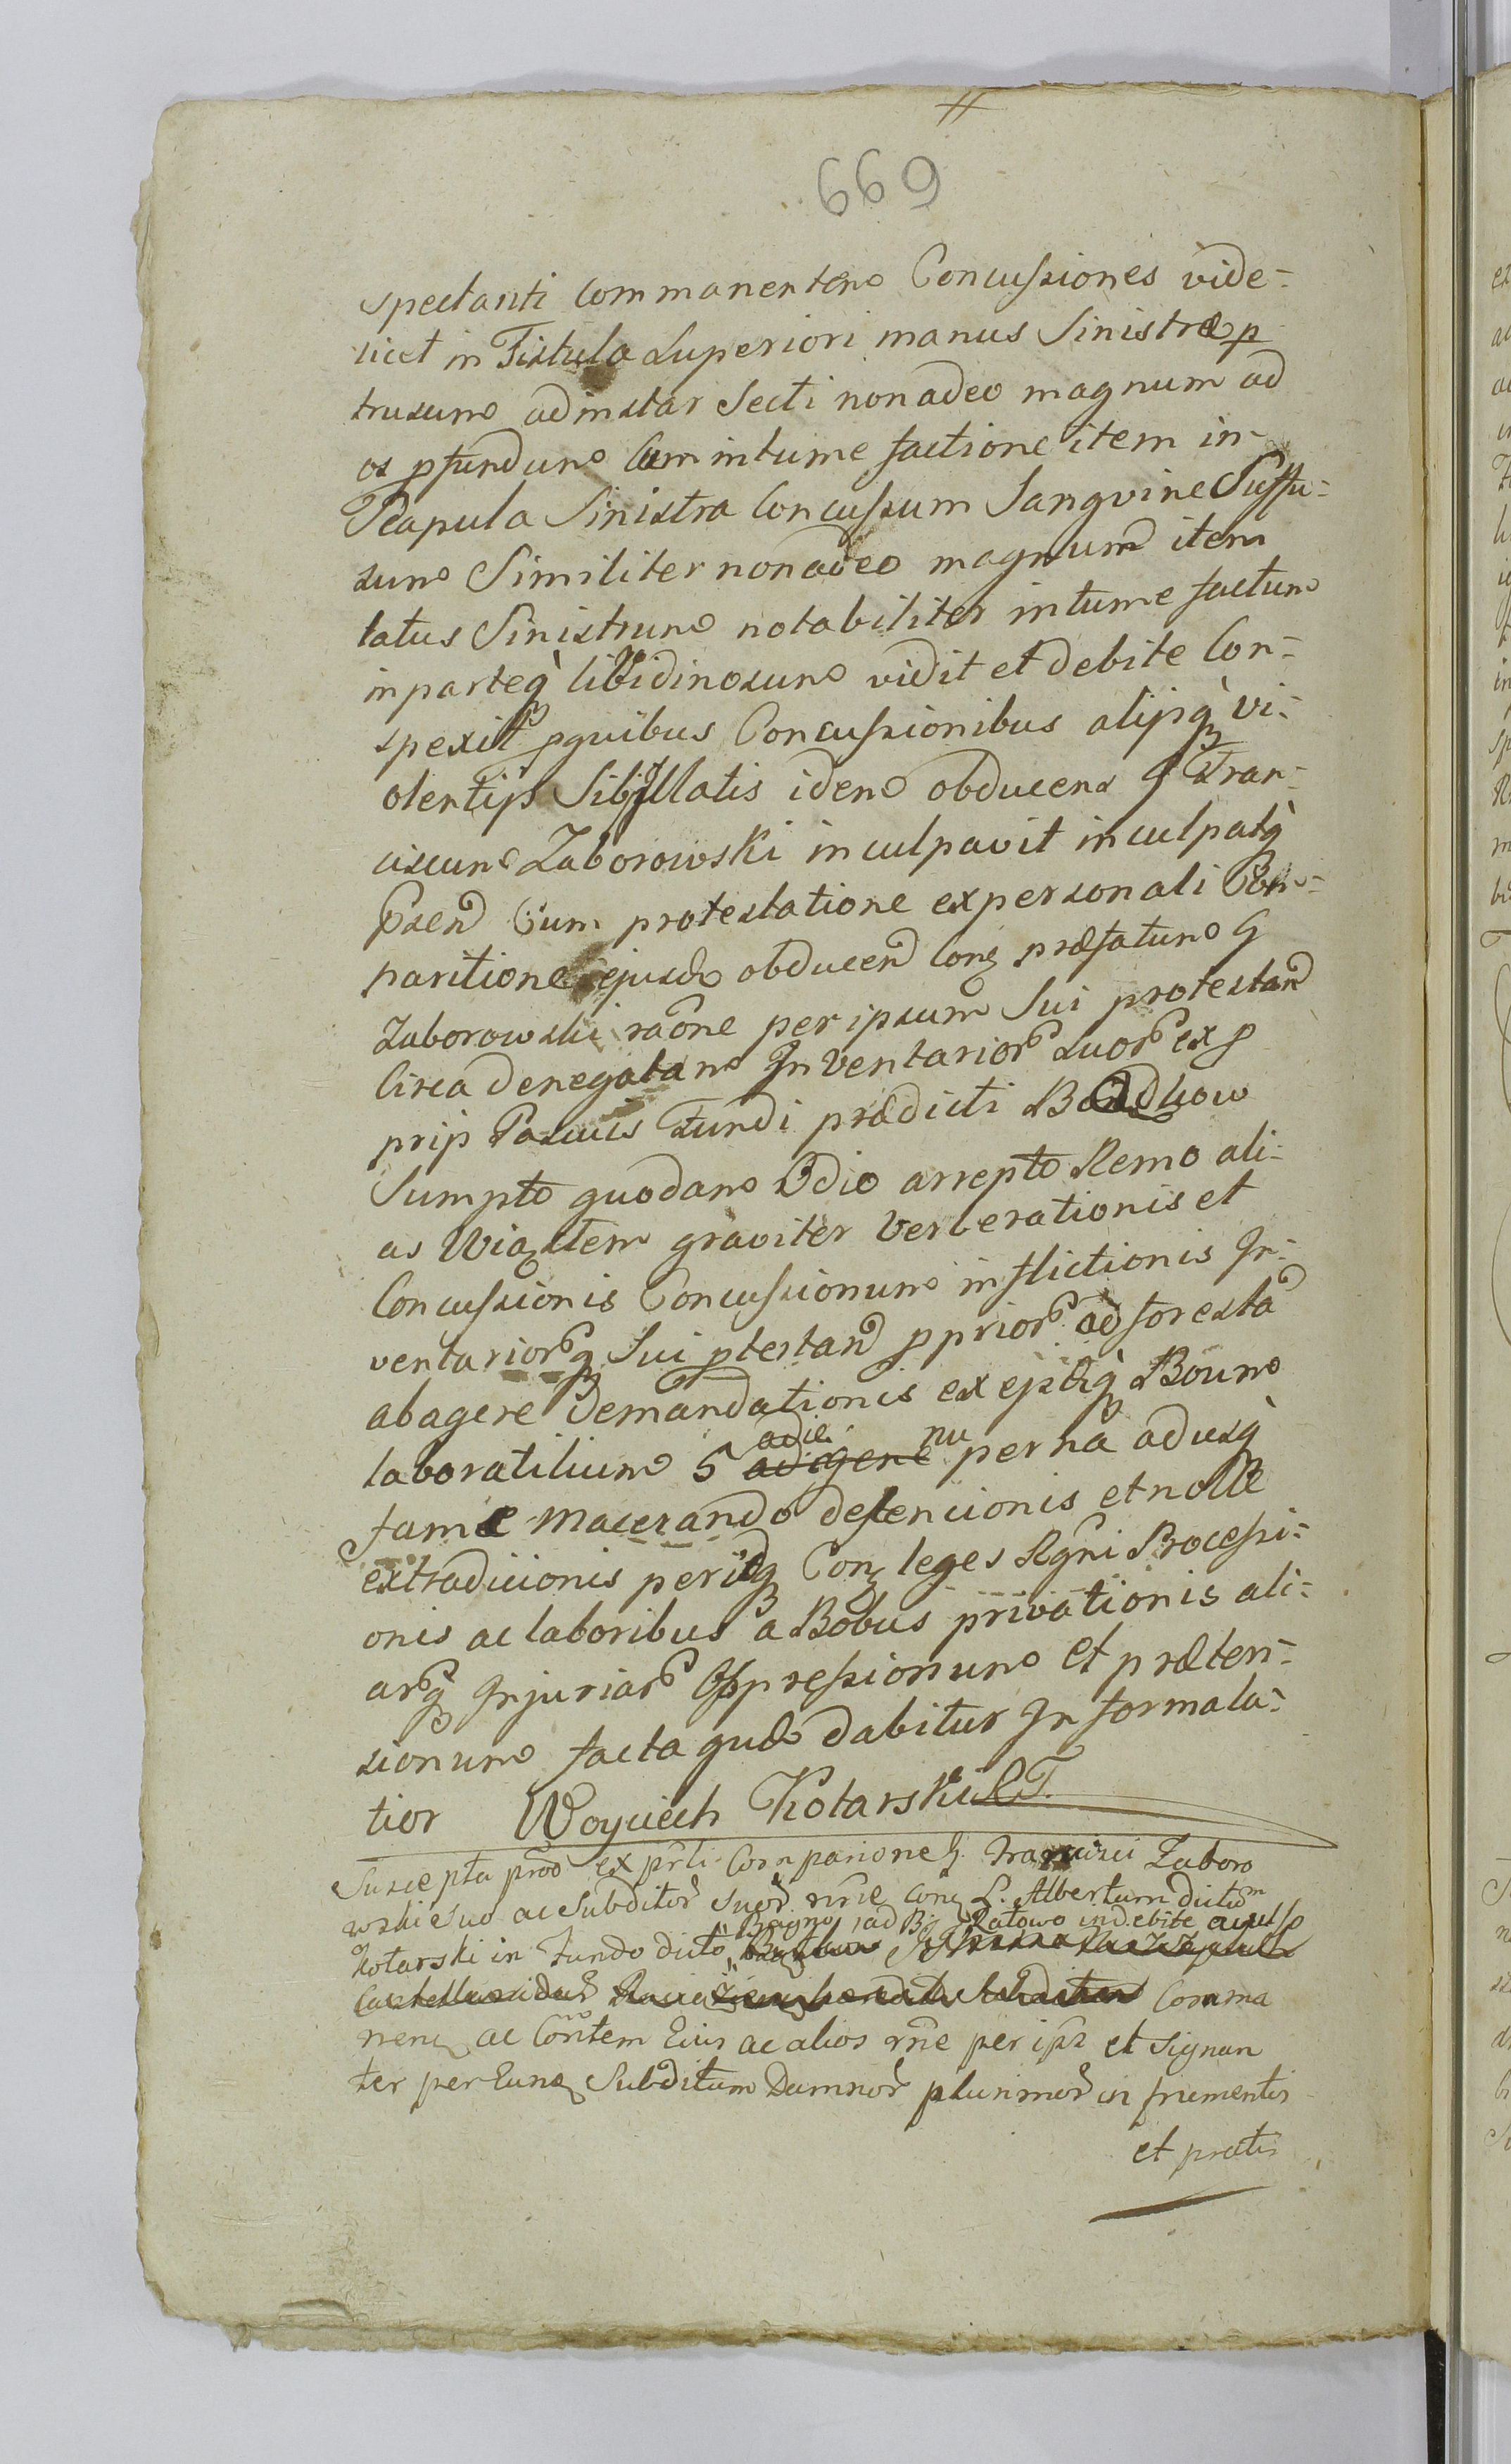 669
spectanti Commanentem Concussiones vide-
licet in Fistula Superiori manus Sinistræ p
trusum adinstar Secti non adeo magnum ad
os pfundum Cum intume factione item in
Scapula Sinistra Concussum Sangvine Suffu-
sum Similiter non adeo magnum item
latus Sinistrum notabiliter intume factum
in parteq libidinosum vidit et debite Con-
spexit pquibus Concussionibus alijsq vi-
olentijs Sibi Illatis idem obducens G Fran-
ciscum Zaborowski inculpavit inculpatq
Psen Cum protestatione ex personali Com-
paritione ejusd obducen Con præfatum G
Zaborowski raone per ipsum Sui protestan
Circa denegatam Inventarior suor ex p
prijs Pascuis Fundi prædicti
Sumpto quodam Odio arrepto Remo ali-
as Wiosłem graviter Verberationis et
Concussionis Concussionum inflictionis In-
ventariorq Sui ptestan pprior ad foresta
abagere demandationis exeptiq Boum
laboratilium 5 adie nu per na adusq
fame macerando detencionis et nolle
extradicionis periq Con leges Rgni Processi-
onis ac laboribus a Bobus privationis ali-
arq Injuriar Oppressionum et præten-
sionum facta qud dabitur In formala-
tior Woyciech Kotarski RT.
Suscepta prod ex prli Comparione G. Francisci Zaboro
wski suo ac Subditor suor nrie con L. Albertum dictum
Bagno ad Ratowo indebite
Kotarski in Fundo dicto
Comma
nen ac Contem Eius ac alios rne per ips et Signan
ter per Eund Subditum Damnor plurimor in frumentis
et pratis